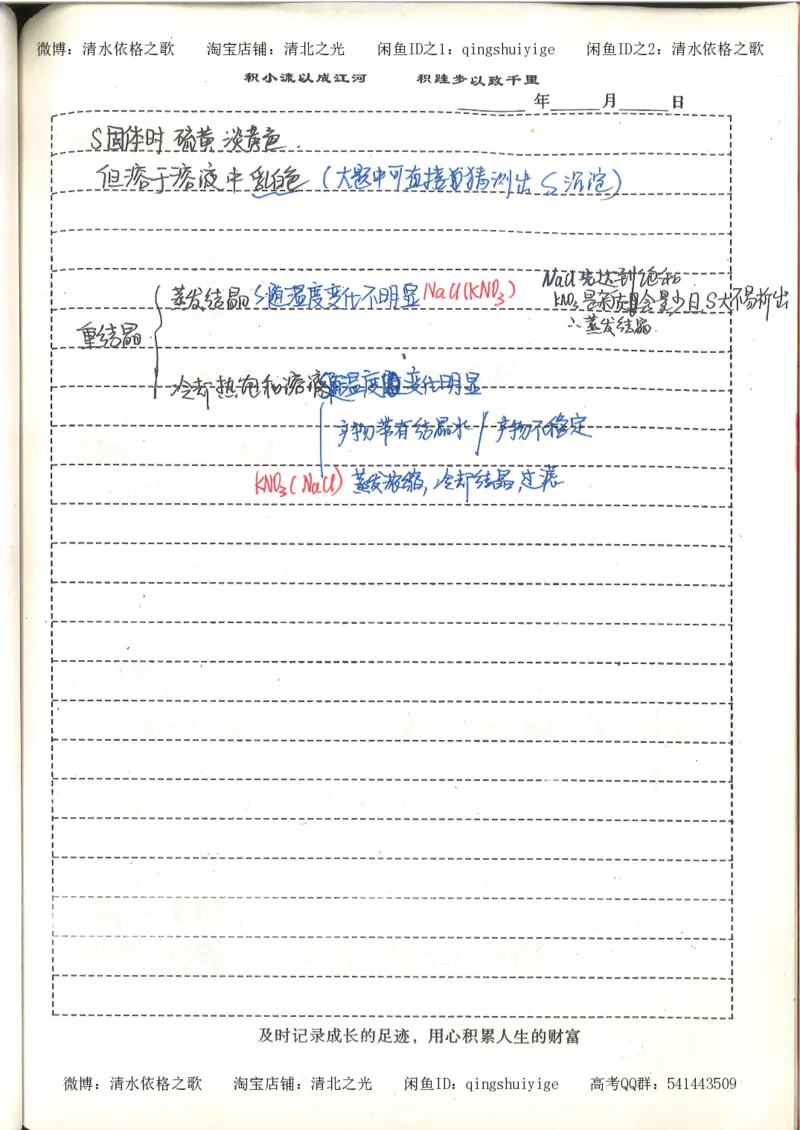 微博：清水依格之歌 淘宝店铺：清北之光 闲鱼ID之1：qingshuiyige 闲鱼ID之2：清水依格之歌
积小流以成江河 积跬步以致千里
年 月 日
S固体时 硫黄 淡黄色.
但溶于溶液中乳白色 (大题中可直接猜测出 S 沉淀)
重结晶
蒸发结晶 S随温度变化不明显 NaCl(KNO₃)
NaCl先达到饱和
KNO₃是杂质且含量少且S大不易析出
∴蒸发结晶.
冷却热饱和溶液 随温度变化明显
产物带有结晶水 / 产物不稳定
KNO₃(NaCl) 蒸发浓缩, 冷却结晶, 过滤
及时记录成长的足迹，用心积累人生的财富
微博：清水依格之歌 淘宝店铺：清北之光 闲鱼ID：qingshuiyige 高考QQ群：541443509